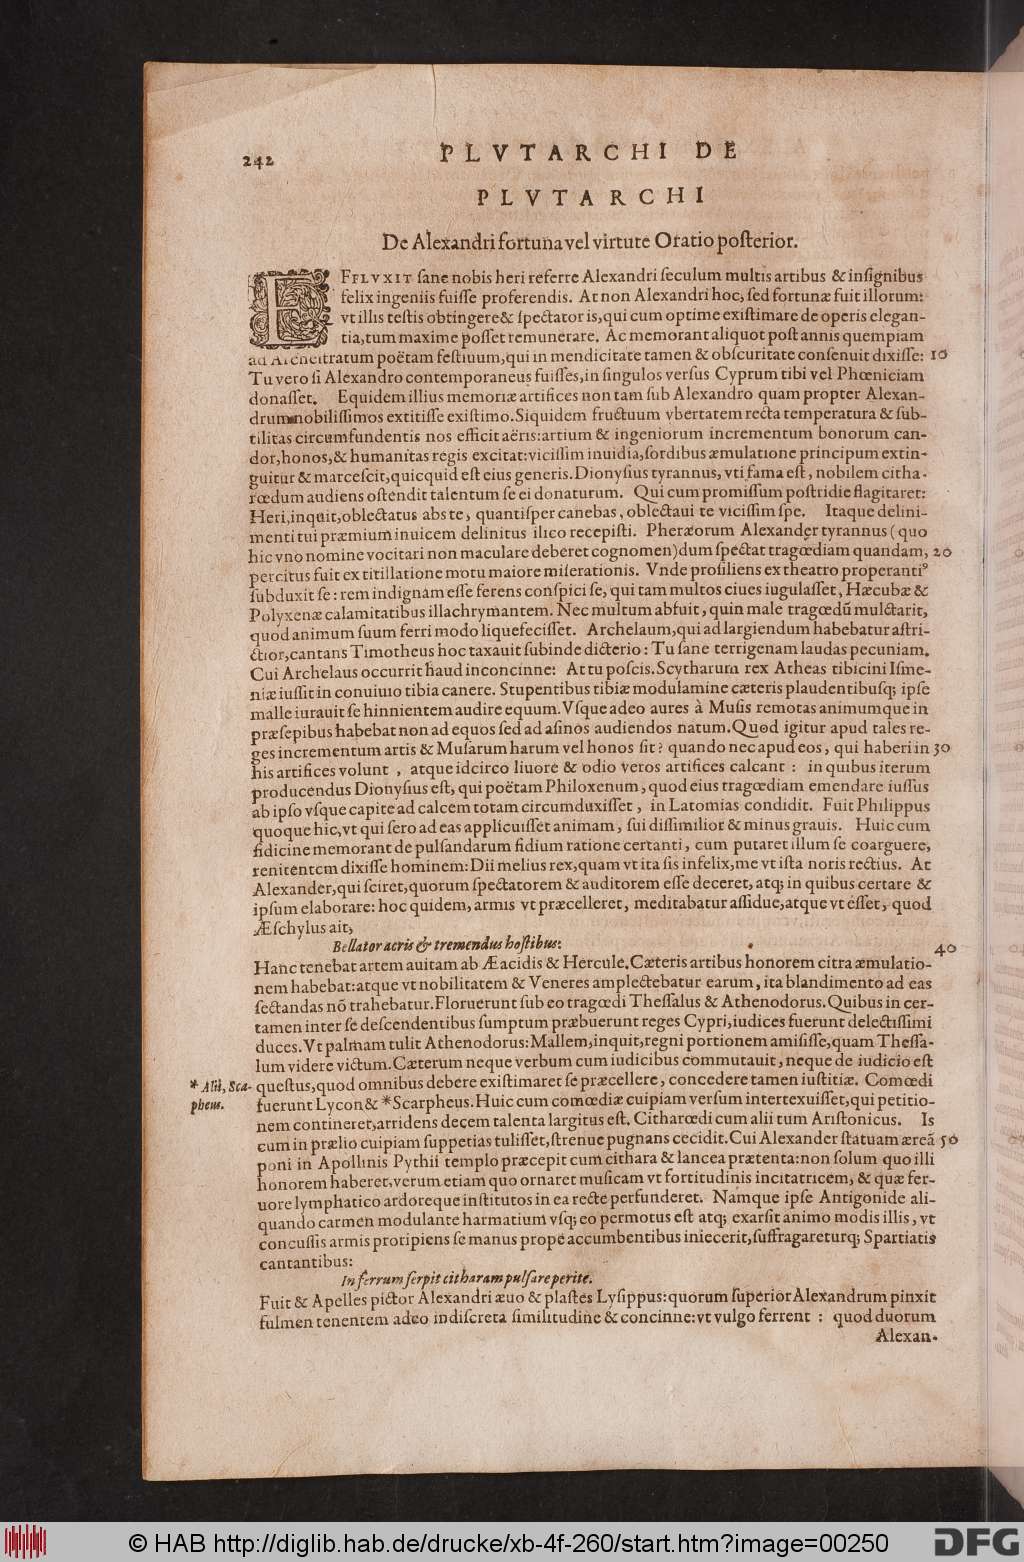 242
PLVTARCHI DE
PLVTARCHI
De Alexandri fortuna vel virtute Oratio posterior.
EFFLVXIT sane nobis heri referre Alexandri seculum multis artibus & insignibus
felix ingeniis fuisse proferendis. At non Alexandri hoc, sed fortunæ fuit illorum:
vt illis testis obtingere & spectator is, qui cum optime existimare de operis elegan-
tia, tum maxime posset remunerare. Ac memorant aliquot post annis quempiam
ad Archestratum poëtam festiuum, qui in mendicitate tamen & obscuritate consenuit dixisse: 10
Tu vero si Alexandro contemporaneus fuisses, in singulos versus Cyprum tibi vel Phœniciam
donasset. Equidem illius memoriæ artifices non tam sub Alexandro quam propter Alexan-
drum nobilissimos extitisse existimo. Siquidem fructuum vbertatem recta temperatura & sub-
tilitas circumfundentis nos efficit aëris: artium & ingeniorum incrementum bonorum can-
dor, honos, & humanitas regis excitat: vicissim inuidia, sordibus æmulatione principum extin-
guitur & marcescit, quicquid est eius generis. Dionysius tyrannus, vti fama est, nobilem citha-
rœdum audiens ostendit talentum se ei donaturum. Qui cum promissum postridie flagitaret:
Heri, inquit, oblectatus abs te, quantisper canebas, oblectaui te vicissim spe. Itaque delini-
menti tui præmium inuicem delinitus ilico recepisti. Pheræorum Alexander tyrannus (quo
hic vno nomine vocitari non maculare deberet cognomen) dum spectat tragœdiam quandam, 20
percitus fuit ex titillatione motu maiore miserationis. Vnde prosiliens ex theatro properantiꝰ
subduxit se: rem indignam esse ferens conspici se, qui tam multos ciues iugulasset, Hæcubæ &
Polyxenæ calamitatibus illachrymantem. Nec multum abfuit, quin male tragœdũ mulctarit,
quod animum suum ferri modo liquefecisset. Archelaum, qui ad largiendum habebatur astri-
ctior, cantans Timotheus hoc taxauit subinde dicterio: Tu sane terrigenam laudas pecuniam.
Cui Archelaus occurrit haud inconcinne: At tu poscis. Scytharum rex Atheas tibicini Isme-
niæ iussit in conuiuio tibia canere. Stupentibus tibiæ modulamine cæteris plaudentibusq; ipse
malle iurauit se hinnientem audire equum. Vsque adeo aures à Musis remotas animumque in
præsepibus habebat non ad equos sed ad asinos audiendos natum. Quod igitur apud tales re-
ges incrementum artis & Musarum harum vel honos sit? quando nec apud eos, qui haberi in 30
his artifices volunt, atque idcirco liuore & odio veros artifices calcant: in quibus iterum
producendus Dionysius est, qui poëtam Philoxenum, quod eius tragœdiam emendare iussus
ab ipso vsque capite ad calcem totam circumduxisset, in Latomias condidit. Fuit Philippus
quoque hic, vt qui sero ad eas applicuisset animam, sui dissimilior & minus grauis. Huic cum
fidicine memorant de pulsandarum fidium ratione certanti, cum putaret illum se coarguere,
renitentem dixisse hominem: Dii melius rex, quam vt ita sis infelix, me vt ista noris rectius. At
Alexander, qui sciret, quorum spectatorem & auditorem esse deceret, atq; in quibus certare &
ipsum elaborare: hoc quidem, armis vt præcelleret, meditabatur assidue, atque vt esset, quod
Æschylus ait,
Bellator acris & tremendus hostibus: 40
Hanc tenebat artem auitam ab Æacidis & Hercule. Cæteris artibus honorem citra æmulatio-
nem habebat: atque vt nobilitatem & Veneres amplectebatur earum, ita blandimento ad eas
sectandas nõ trahebatur. Floruerunt sub eo tragœdi Thessalus & Athenodorus. Quibus in cer-
tamen inter se descendentibus sumptum præbuerunt reges Cypri, iudices fuerunt delectissimi
duces. Vt palmam tulit Athenodorus: Mallem, inquit, regni portionem amisisse, quam Thessa-
lum videre victum. Cæterum neque verbum cum iudicibus commutauit, neque de iudicio est
* Alii, Sca-
pheus.
questus, quod omnibus debere existimaret se præcellere, concedere tamen iustitiæ. Comœdi
fuerunt Lycon & *Scarpheus. Huic cum comœdiæ cuipiam versum intertexuisset, qui petitio-
nem contineret, arridens decem talenta largitus est. Citharœdi cum alii tum Aristonicus. Is
cum in prælio cuipiam suppetias tulisset, strenue pugnans cecidit. Cui Alexander statuam æreã 50
poni in Apollinis Pythii templo præcepit cum cithara & lancea prætenta: non solum quo illi
honorem haberet, verum etiam quo ornaret musicam vt fortitudinis incitatricem, & quæ fer-
uore lymphatico ardoreque institutos in ea recte perfunderet. Namque ipse Antigonide ali-
quando carmen modulante harmatium vsq; eo permotus est atq; exarsit animo modis illis, vt
concussis armis proripiens se manus prope accumbentibus iniecerit, suffragareturq; Spartiatis
cantantibus:
In ferrum serpit citharam pulsare perite.
Fuit & Apelles pictor Alexandri æuo & plastes Lysippus: quorum superior Alexandrum pinxit
fulmen tenentem adeo indiscreta similitudine & concinne: vt vulgo ferrent: quod duorum
Alexan-
© HAB http://diglib.hab.de/drucke/xb-4f-260/start.htm?image=00250
DFG